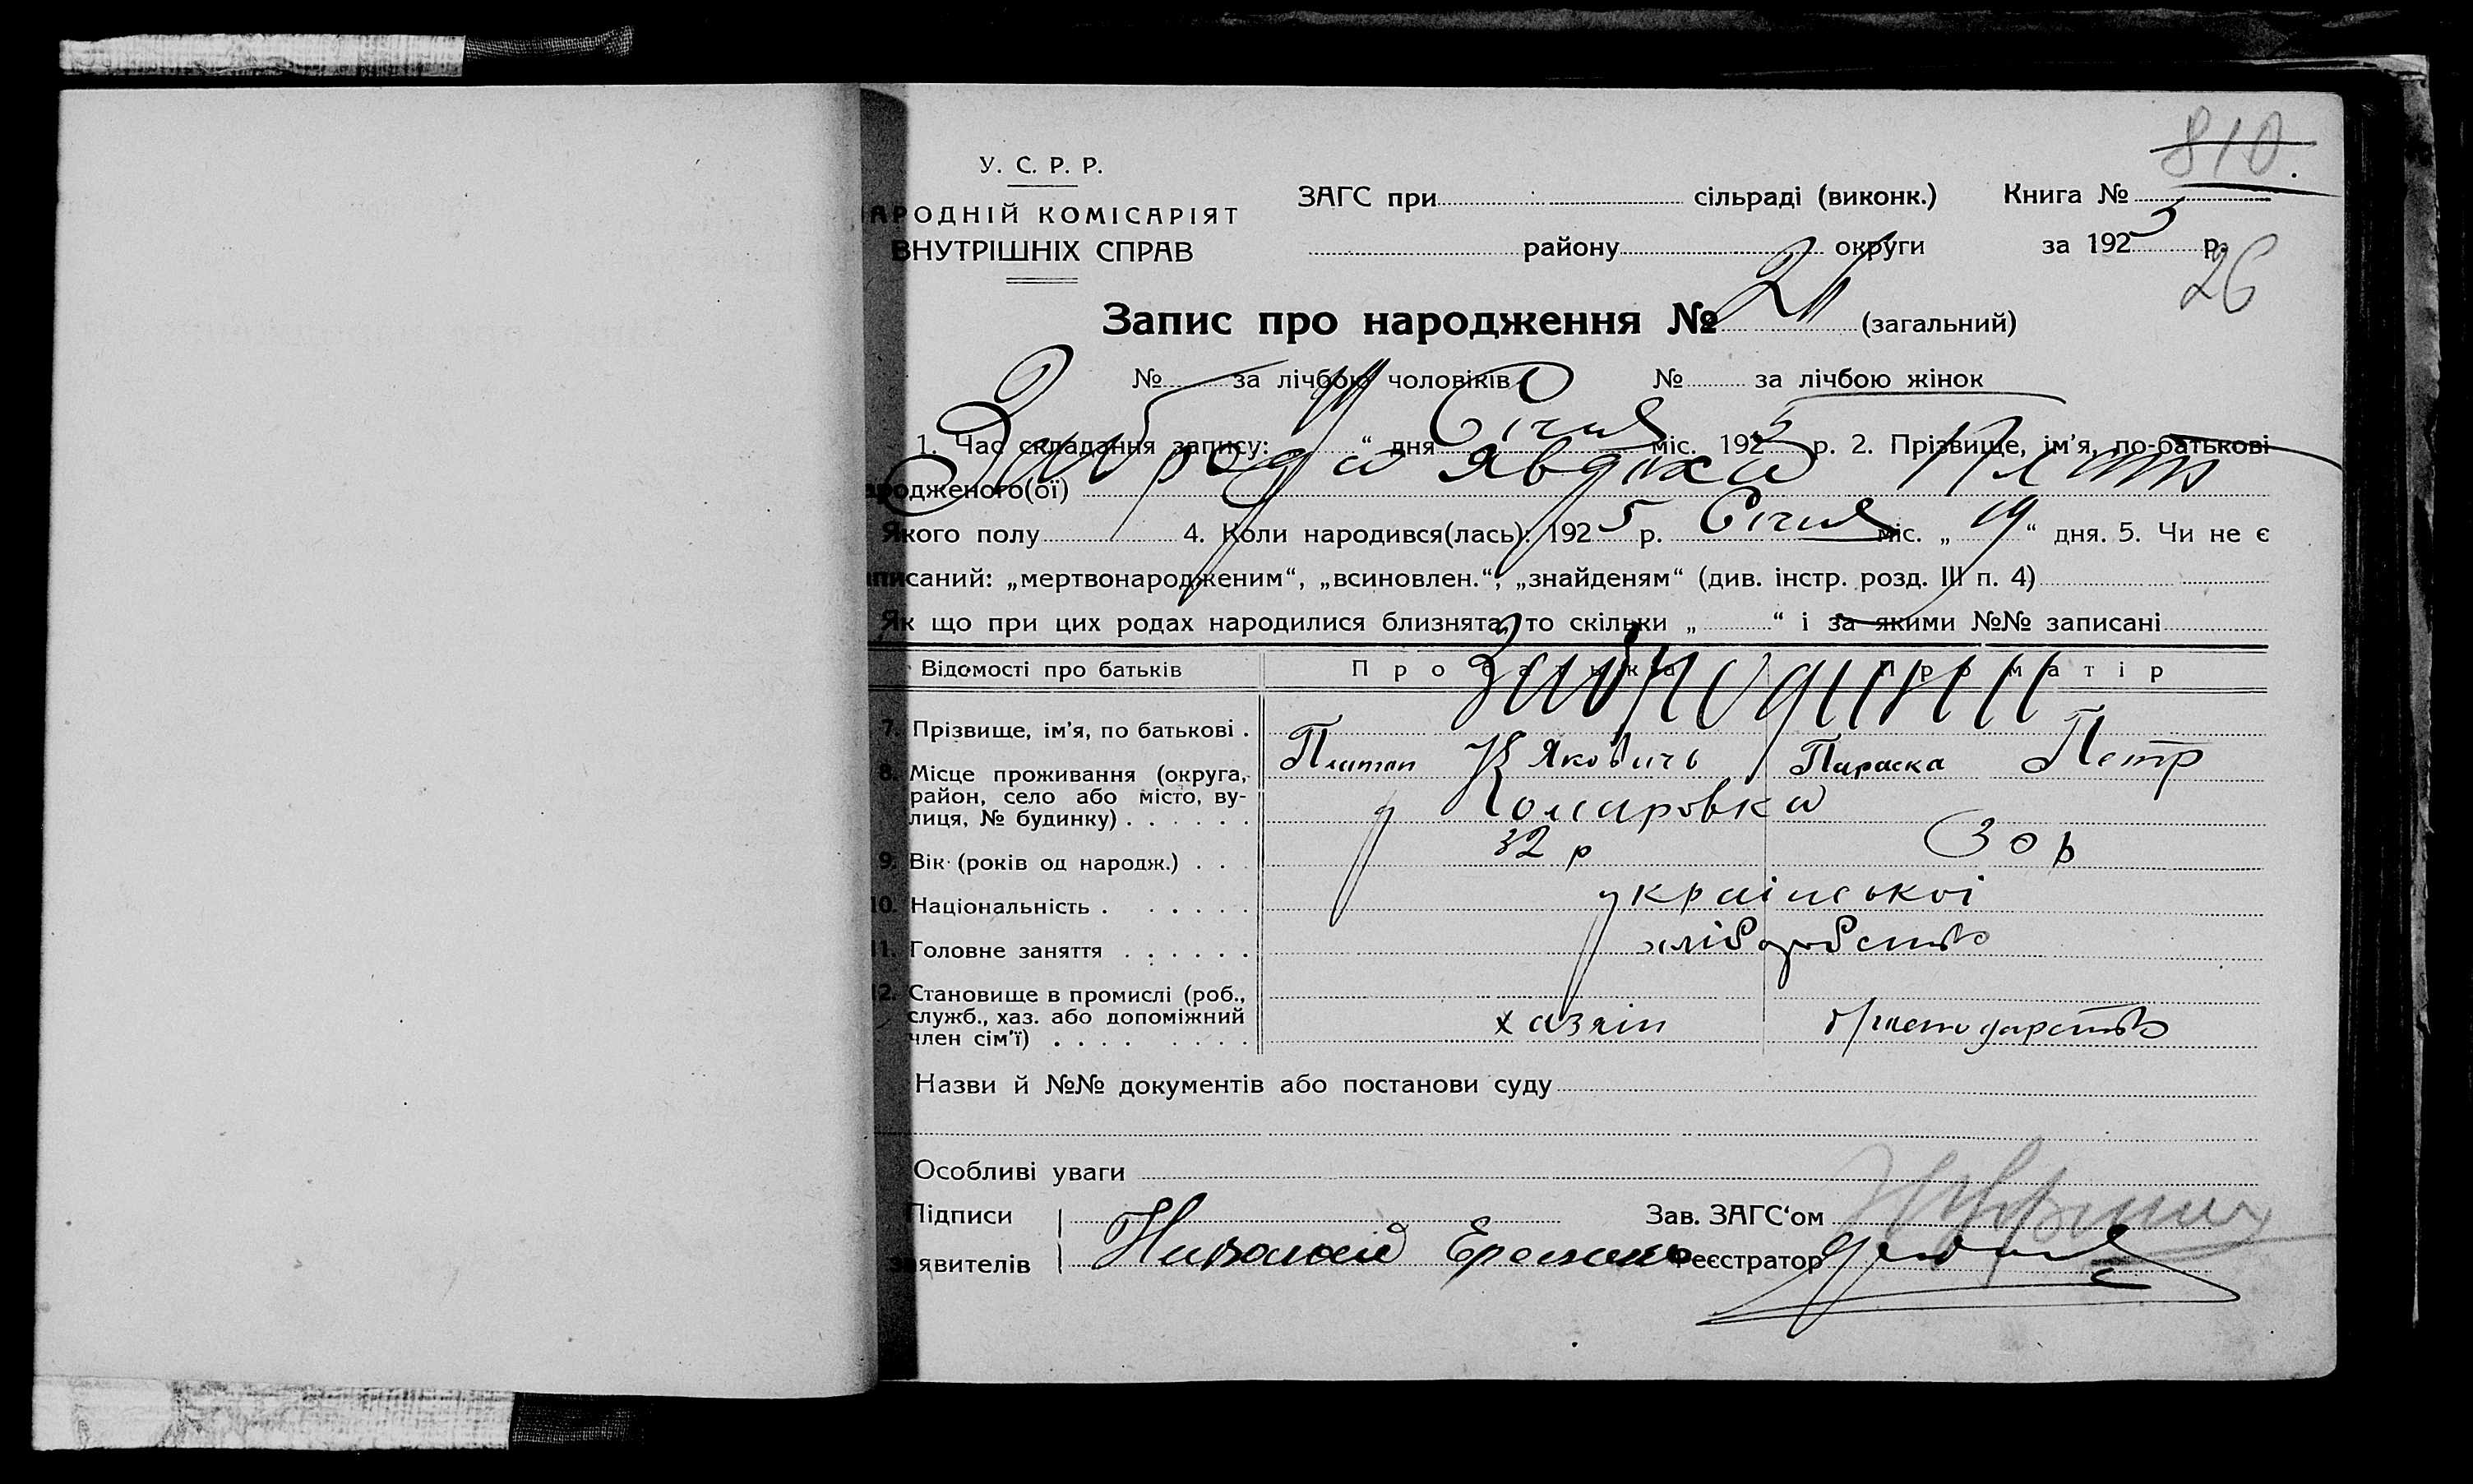 810.
У. С. Р. Р.
АРОДНІЙ КОМІСАРІЯТ
ВНУТРІШНІХ СПРАВ
ЗАГС при сільраді (виконк.) Книга №
району округи за 1925 р.
26
Запис про народження № (загальний)
№ за лічбою чоловіків № за лічбою жінок
1. Час складання запису: “ дня Січня міс. 1925 р. 2. Прізвище, ім’я, по-батькові
ародженого(ої) Заброда Явдоха Плат
Якого полу 4. Коли народився(лась): 1925 р. Січня міс. „ 19 “ дня. 5. Чи не є
аписаний: „мертвонародженим“, „всиновлен.“, „знайденям“ (див. інстр. розд. III п. 4)
Як що при цих родах народилися близнята, то скільки „ “ і за якими №№ записані
Відомості про батьків Про батька Про матір
7. Прізвище, ім’я, по батькові . Забродини
Платон Яковичь Параска Петр
8. Місце проживання (округа, район, село або місто, ву-
лиця, № будинку) . . . . . . Комаровка
9. Вік (років од народж.) . . . 32 р 30 р
10. Національність . . . . . . української
11. Головне заняття . . . . . . хліборобство
12. Становище в промислі (роб.,
служб., хаз. або допоміжний
член сім’ї) . . . . . . . . хазяін
Назви й №№ документів або постанови суду
Особливі уваги
Підписи Зав. ЗАГС‘ом
заявителів Реєстратор